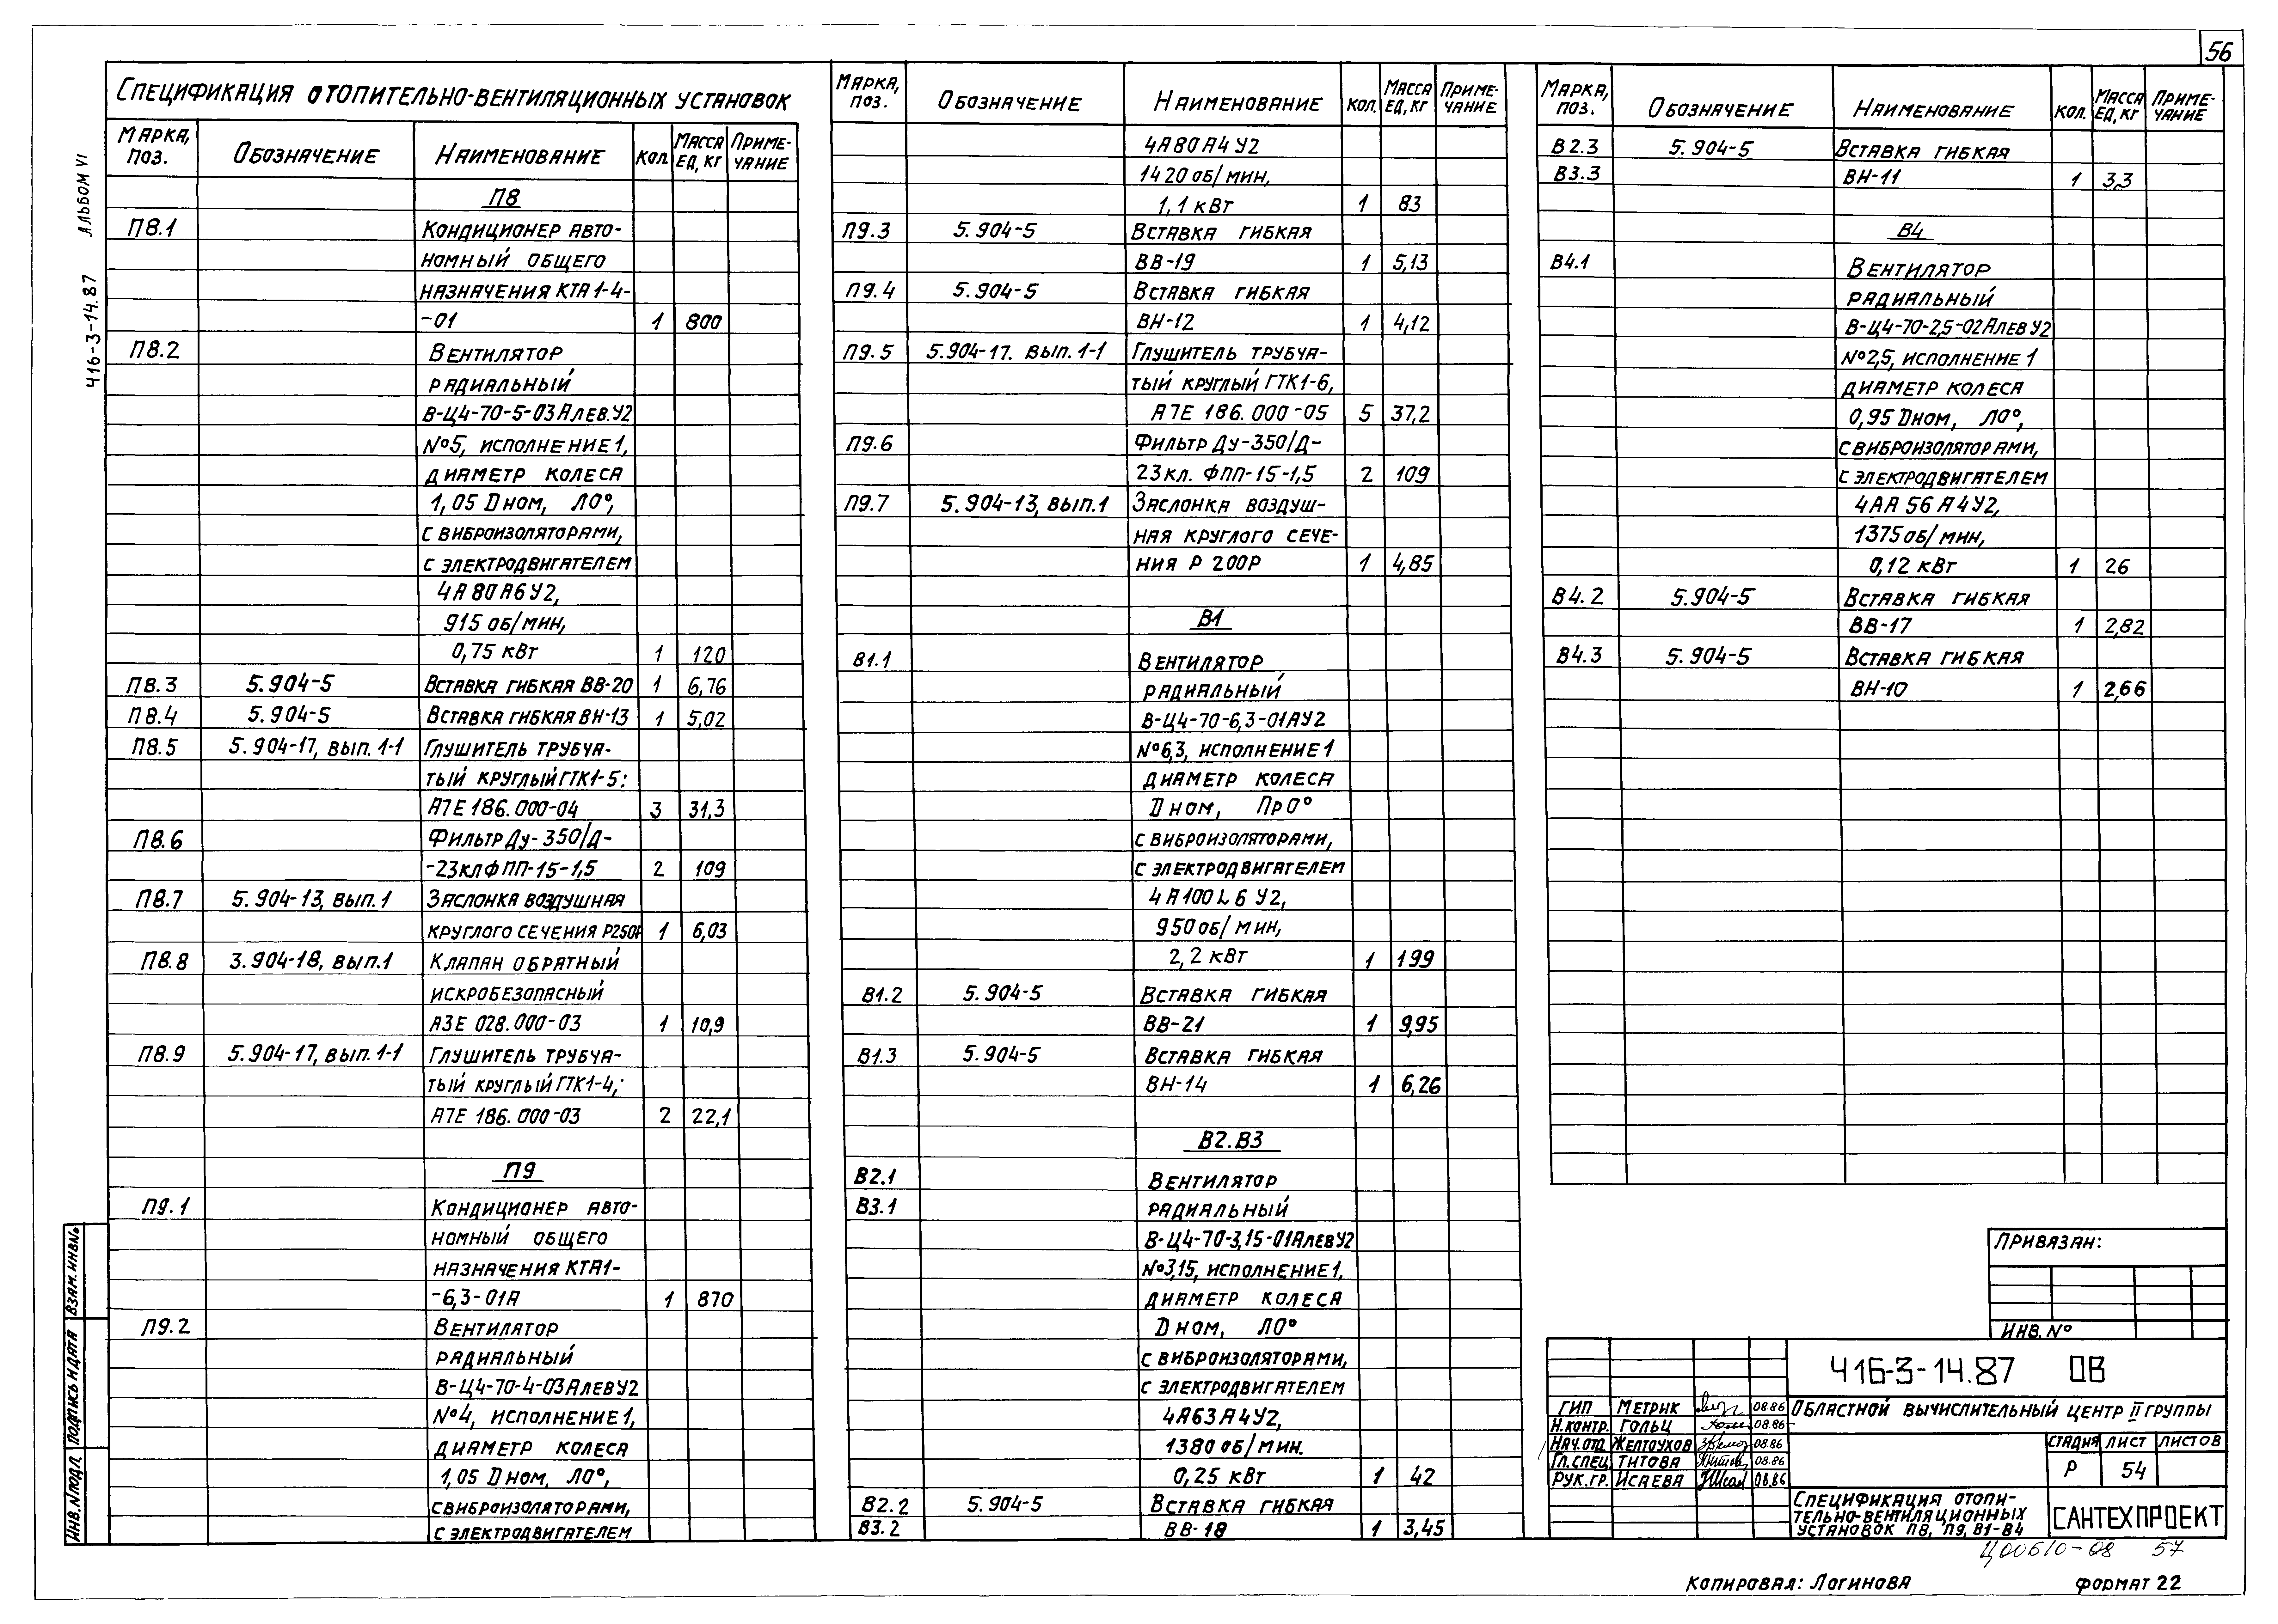 56
АЛЬБОМ VI
416-3-14.87
СПЕЦИФИКАЦИЯ ОТОПИТЕЛЬНО-ВЕНТИЛЯЦИОННЫХ УСТАНОВОК
МАРКА, ПОЗ. ОБОЗНАЧЕНИЕ НАИМЕНОВАНИЕ КОЛ. МАССА ЕД, КГ ПРИМЕ-ЧАНИЕ
П8
П8.1 КОНДИЦИОНЕР АВТО-
НОМНЫЙ ОБЩЕГО
НАЗНАЧЕНИЯ КТА 1-4-
-01 1 800
П8.2 ВЕНТИЛЯТОР
РАДИАЛЬНЫЙ
В-Ц4-70-5-03АЛЕВ.У2
№5, ИСПОЛНЕНИЕ 1,
ДИАМЕТР КОЛЕСА
1,05 Dном, Л0°,
С ВИБРОИЗОЛЯТОРАМИ,
С ЭЛЕКТРОДВИГАТЕЛЕМ
4А80А6У2,
915 об/мин,
0,75 кВт 1 120
П8.3 5.904-5 ВСТАВКА ГИБКАЯ ВВ-20 1 6,76
П8.4 5.904-5 ВСТАВКА ГИБКАЯ ВН-13 1 5,02
П8.5 5.904-17, ВЫП. 1-1 ГЛУШИТЕЛЬ ТРУБЧА-
ТЫЙ КРУГЛЫЙ ГТК1-5:
А7Е 186.000-04 3 31,3
П8.6 ФИЛЬТР Ду-350/Д-
-23КЛФПП-15-1,5 2 109
П8.7 5.904-13, ВЫП.1 ЗАСЛОНКА ВОЗДУШНАЯ
КРУГЛОГО СЕЧЕНИЯ Р250Р 1 6,03
П8.8 3.904-18, ВЫП.1 КЛАПАН ОБРАТНЫЙ
ИСКРОБЕЗОПАСНЫЙ
АЗЕ 028.000-03 1 10,9
П8.9 5.904-17, ВЫП. 1-1 ГЛУШИТЕЛЬ ТРУБЧА-
ТЫЙ КРУГЛЫЙ ГТК1-4,
А7Е 186.000-03 2 22,1
П9
П9.1 КОНДИЦИОНЕР АВТО-
НОМНЫЙ ОБЩЕГО
НАЗНАЧЕНИЯ КТА1-
-6,3-01А 1 870
П9.2 ВЕНТИЛЯТОР
РАДИАЛЬНЫЙ
В-Ц4-70-4-03АЛЕВУ2
№4, ИСПОЛНЕНИЕ 1,
ДИАМЕТР КОЛЕСА
1,05 Dном, Л0°,
С ВИБРОИЗОЛЯТОРАМИ,
С ЭЛЕКТРОДВИГАТЕЛЕМ
МАРКА, ПОЗ. ОБОЗНАЧЕНИЕ НАИМЕНОВАНИЕ КОЛ. МАССА ЕД, КГ ПРИМЕ-ЧАНИЕ
4А80А4У2
1420 об/мин,
1,1 кВт 1 83
П9.3 5.904-5 ВСТАВКА ГИБКАЯ
ВВ-19 1 5,13
П9.4 5.904-5 ВСТАВКА ГИБКАЯ
ВН-12 1 4,12
П9.5 5.904-17. ВЫП. 1-1 ГЛУШИТЕЛЬ ТРУБЧА-
ТЫЙ КРУГЛЫЙ ГТК1-6,
А7Е 186.000-05 5 37,2
П9.6 ФИЛЬТР Ду-350/Д-
23КЛ. ФПП-15-1,5 2 109
П9.7 5.904-13, ВЫП.1 ЗАСЛОНКА ВОЗДУШ-
НАЯ КРУГЛОГО СЕЧЕ-
НИЯ Р 200Р 1 4,85
В1
В1.1 ВЕНТИЛЯТОР
РАДИАЛЬНЫЙ
В-Ц4-70-6,3-01АУ2
№6,3, ИСПОЛНЕНИЕ 1
ДИАМЕТР КОЛЕСА
Dном, Пр0°
С ВИБРОИЗОЛЯТОРАМИ,
С ЭЛЕКТРОДВИГАТЕЛЕМ
4А100L6У2,
950 об/мин,
2,2 кВт 1 199
В1.2 5.904-5 ВСТАВКА ГИБКАЯ
ВВ-21 1 9,95
В1.3 5.904-5 ВСТАВКА ГИБКАЯ
ВН-14 1 6,26
В2.В3
В2.1 ВЕНТИЛЯТОР
В3.1 РАДИАЛЬНЫЙ
В-Ц4-70-3,15-01АЛЕВУ2
№3,15, ИСПОЛНЕНИЕ 1,
ДИАМЕТР КОЛЕСА
Dном, Л0°
С ВИБРОИЗОЛЯТОРАМИ,
С ЭЛЕКТРОДВИГАТЕЛЕМ
4А63А4У2,
1380 об/мин.
0,25 кВт 1 42
В2.2 5.904-5 ВСТАВКА ГИБКАЯ
В3.2 ВВ-18 1 3,45
МАРКА, ПОЗ. ОБОЗНАЧЕНИЕ НАИМЕНОВАНИЕ КОЛ. МАССА ЕД, КГ ПРИМЕ-ЧАНИЕ
В2.3 5.904-5 ВСТАВКА ГИБКАЯ
В3.3 ВН-11 1 3,3
В4
В4.1 ВЕНТИЛЯТОР
РАДИАЛЬНЫЙ
В-Ц4-70-2,5-02АЛЕВУ2
№2,5, ИСПОЛНЕНИЕ 1
ДИАМЕТР КОЛЕСА
0,95 Dном, Л0°,
С ВИБРОИЗОЛЯТОРАМИ,
С ЭЛЕКТРОДВИГАТЕЛЕМ
4АА56А4У2,
1375 об/мин,
0,12 кВт 1 26
В4.2 5.904-5 ВСТАВКА ГИБКАЯ
ВВ-17 1 2,82
В4.3 5.904-5 ВСТАВКА ГИБКАЯ
ВН-10 1 2,66
ПРИВЯЗАН:
ИНВ. №
416-3-14.87 ОВ
ГИП МЕТРИК 08.86
Н.КОНТР. ГОЛЬЦ 08.86
НАЧ.ОТД ЖЕЛТОУХОВ 08.86
ГЛ.СПЕЦ. ТИТОВА 08.86
РУК.ГР. ИСАЕВА 08.86
ОБЛАСТНОЙ ВЫЧИСЛИТЕЛЬНЫЙ ЦЕНТР II ГРУППЫ
СТАДИЯ ЛИСТ ЛИСТОВ
Р 54
СПЕЦИФИКАЦИЯ ОТОПИ-
ТЕЛЬНО-ВЕНТИЛЯЦИОННЫХ
УСТАНОВОК П8, П9, В1-В4
САНТЕХПРОЕКТ
Ц00610-08 57
КОПИРОВАЛ: ЛОГИНОВА ФОРМАТ 22
ВЗАМ. ИНВ.№
ПОДПИСЬ И ДАТА
ИНВ. № ПОДЛ.